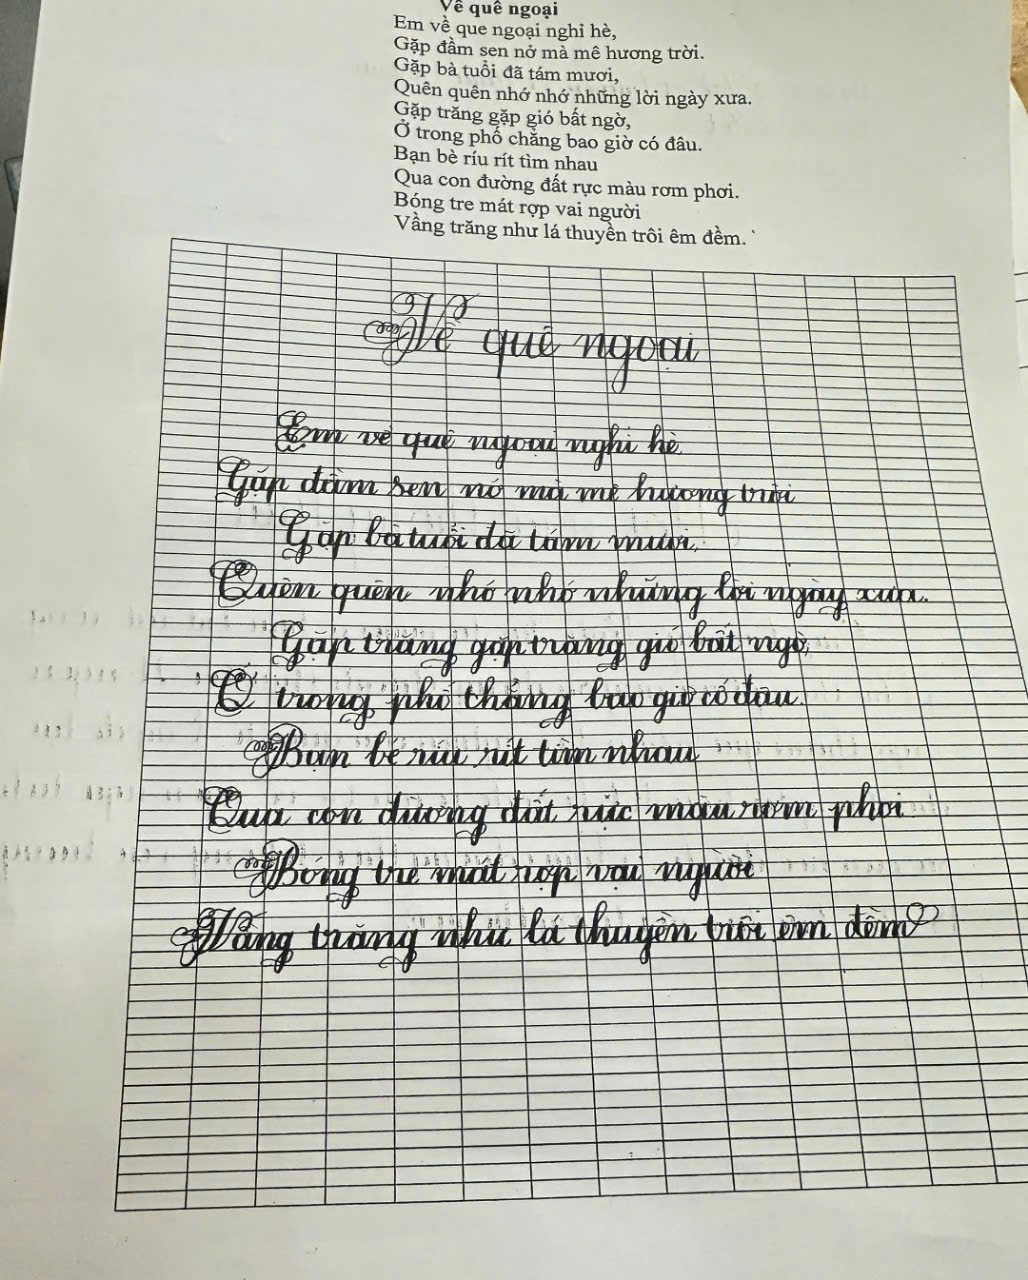 Về quê ngoại
Em về que ngoại nghỉ hè,
Gặp đầm sen nở mà mê hương trời.
Gặp bà tuổi đã tám mươi,
Quên quên nhớ nhớ những lời ngày xưa.
Gặp trăng gặp gió bất ngờ,
Ở trong phố chẳng bao giờ có đâu.
Bạn bè ríu rít tìm nhau
Qua con đường đất rực màu rơm phơi.
Bóng tre mát rợp vai người
Vầng trăng như lá thuyền trôi êm đềm.
Về quê ngoại
Em về quê ngoại nghỉ hè
Gặp đầm sen nở mà mê hương trời
Gặp bà tuổi đã tám mươi.
Quên quên nhớ nhớ những lời ngày xưa.
Gặp trăng gặp trăng gió bất ngờ,
Ở trong phố chẳng bao giờ có đâu.
Bạn bè ríu rít tìm nhau
Qua con đường đất rực màu rơm phơi
Bóng tre mát rợp vai người
Vầng trăng như lá thuyền trôi êm đềm